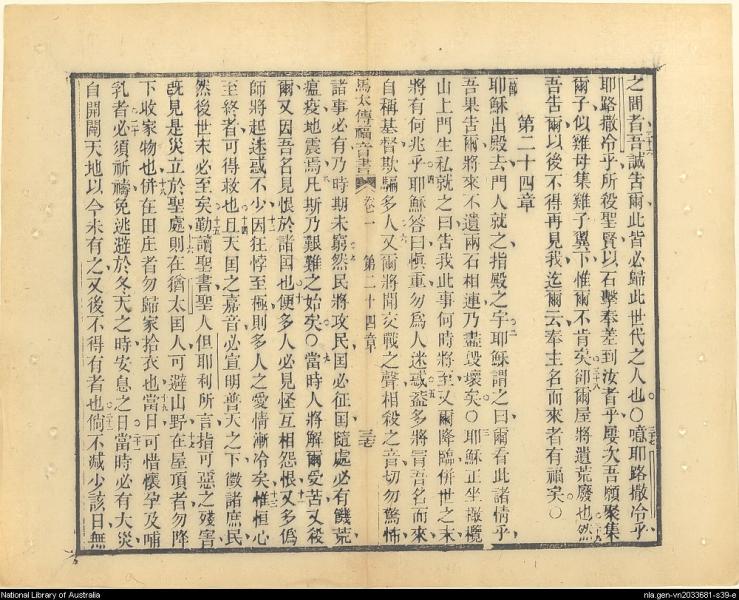 之間者吾誠吿爾此皆必歸此世代之人也○噫耶路撒冷乎
耶路撒冷乎所役聖賢以石擊奉差到汝者乎屢次吾願聚集
爾子似雞母集雞子翼下惟爾不肯矣卻爾屋將遺荒廢也然
吾吿爾以後不得再見我迄爾云奉主名而來者有福矣○
第二十四章
耶穌出殿去門人就之指殿之字耶穌謂之曰爾看此諸情乎
吾果吿爾將來不遺兩石相連乃盡毀壞矣○耶穌正坐橄欖
山上門生私就之曰吿我此事何時將至又爾降臨併世之末
將有何兆乎耶穌答曰慎重勿為人迷惑蓋多將冒吾名而來
自稱基督欺騙多人又爾將聞交戰之聲相殺之音切勿驚怖
馬太傳福音書 卷一 第二十四章
諸事必有乃時期未窮然民將攻民囯必征囯隨處必有饑荒
瘟疫地震焉凡斯乃艱難之始矣○當時人將解爾受苦又殺
爾又因吾名見恨於諸囯也便多人必見怪互相怨恨又多偽
師將起迷惑不少因狂悖至極則多人之愛情漸冷矣惟恒心
至終者可得救也且天囯之嘉音必宣明普天之下徵諸庶民
然後世末必至矣勤讀聖書聖人但耶利所言指可惡之殘害
旣見是災立於聖處則在猶太囯人可避山野在屋頂者勿降
下收家物也併在田庄者勿歸家拾衣也當日可惜懷孕及哺
乳者必須祈禱免逃避於冬天之時安息之日當時必有大災
自開闢天地以今未有之又後不得有者也倘不減少該日無
National Library of Australia
nla.gen-vn2033681-s39-e